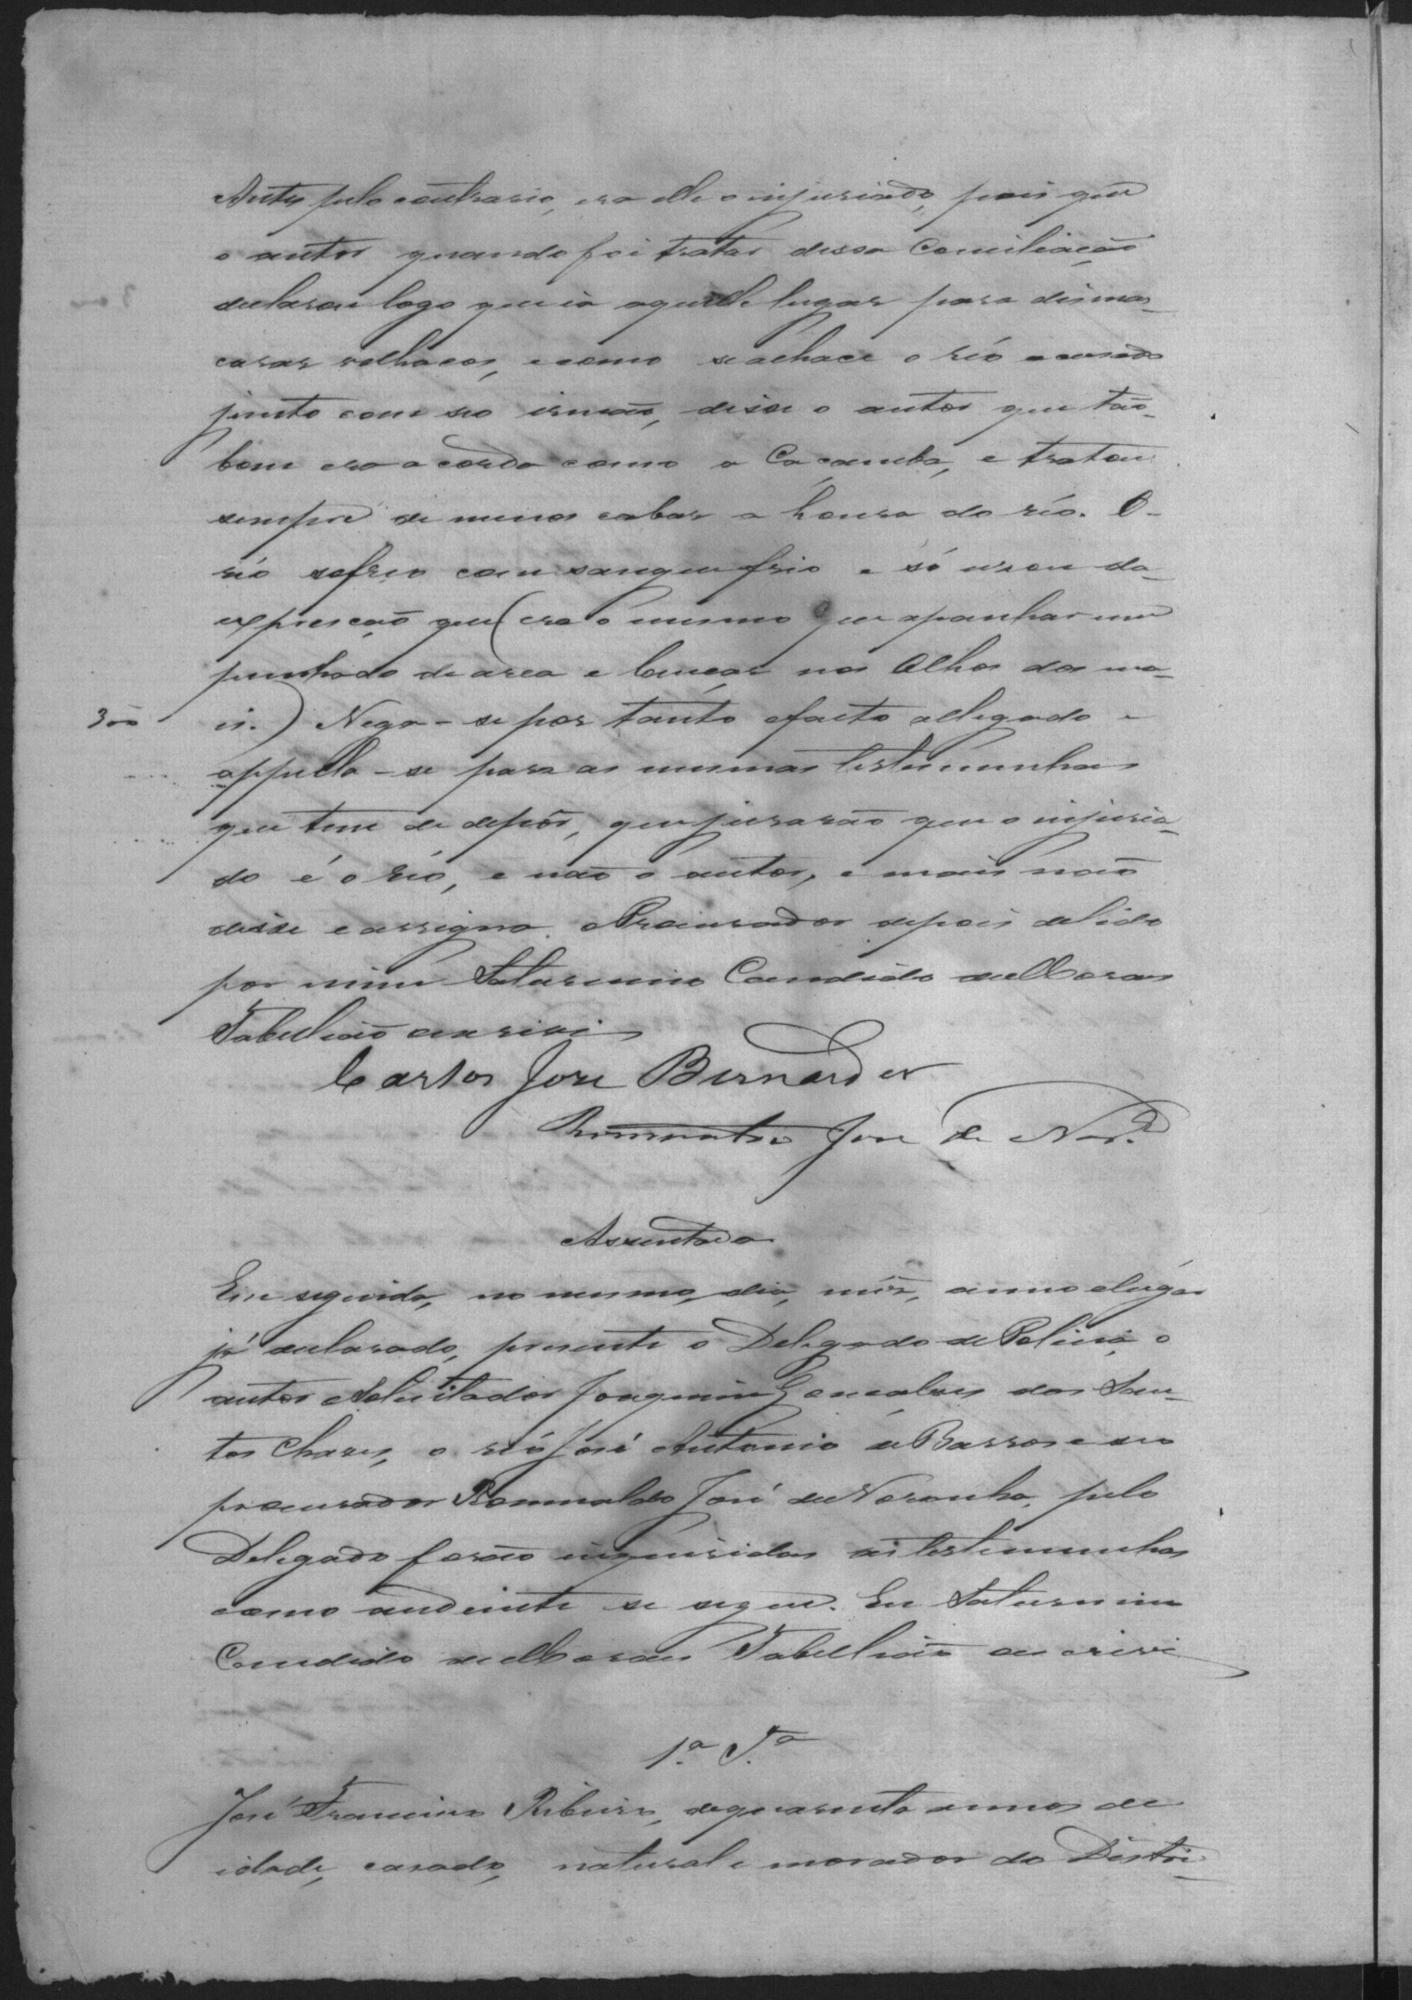 Antes pelo contrario, era elle o injuriado, pois que
o autor quando foi tratar dessa Conciliação
declarou logo que ia aquelle lugar para disma-
carar velhacos, e como se achace o réo accusado
junto com seo irmão, disse o autor que tão-
bem era a corda como a Caçamba, e tratou
sempre de menos cabar a honra do réo. O-
réo sofreo com sangue frio e só usou da-
expreção que (era o mesmo que apanhar um
punhado de area e lançar nos Olhos dos ma-
300 is.) Nega-se por tanto o facto allegado e
appella-se para as mesmas testemunhas
que tem de depôr, que jurarão que o injuria-
do é o réo, e não o autor, e mais não
disse e assigna o Procurador depois de lido
por mim Saturnino Candido de Moraes
Tabellião escrivi
Carlos Jose Bernardes
Romualdo Jose de Nor.ª
Assentada
Em seguida, no mesmo, dia, mês, anno e lugar
já declarado, presente o Delegado de Policia, o
autor Solicitador Joaquim Gonçalves dos San-
tos Chaves, o réo José Antonio de Barros e seo
procurador Romualdo José de Noronha, pelo
Delegado forão inqueridas as testemunhas
como andiente se segue. Eu Saturnino
Candido de Moraes Tabellião escrivi
1.ª T.ª
José Francisco Ribeiro, de quarenta annos de
idade, casado, natural e morador do Distri-